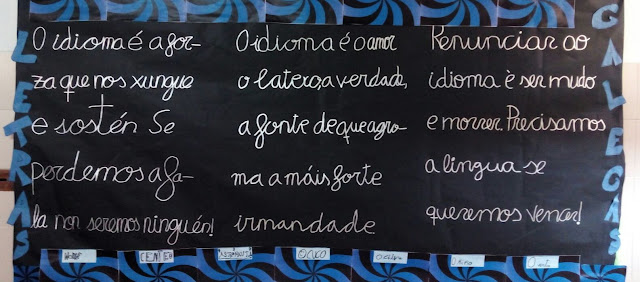 LETRAS
O idioma é a for-
za que nos xungue
e sostén. Se
perdemos a fa-
la non seremos ninguén!
O idioma é o amor
o latexo, a verdade,
a fonte de que agro-
ma a máis forte
irmandade.
Renunciar ao
idioma è ser mudo
e morrer. Precisamos
a lingua se
queremos vencer!
GALEGAS